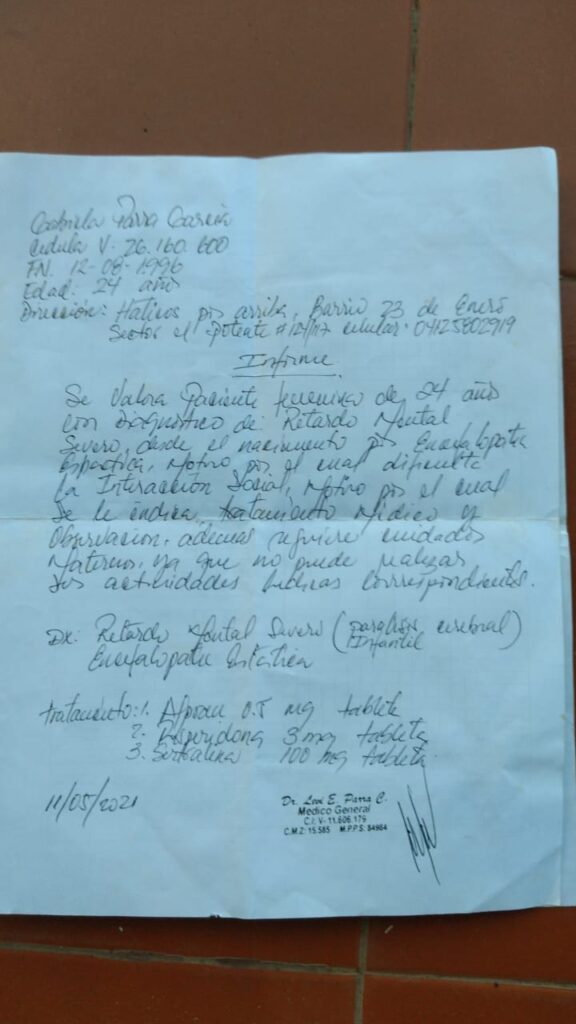 Gabriela Parra García
Cedula V- 26.160.600
FN. 12-08-1996
Edad: 24 años
Dirección: Haticos por arriba, Barrio 23 de Enero
Sector el Potente # 121/117 celular: 04125802919
Informe
Se Valora Paciente femenina de 24 años
con Diagnostico de: Retardo Mental
Severo, desde el nacimiento por Encefalopatia
Motivo por el cual dificulta
La Interacción Social, Motivo por el cual
Se le indica, tratamiento Médico y
Observacion, ademas requiere cuidados
Maternos, ya que no puede realizar
sus actividades correspondientes.
Dx: Retardo Mental Severo (paralisis cerebral
Infantil)
Encefalopatia
tratamiento: 1. 0.5 mg tableta
2. Risperidona 3 mg tableta
3. Sertralina 100 mg tableta
11/05/2021
Dr. Levi E. Parra C.
Medico General
C.I. V- 11.606.179
C.M.Z: 15.585 M.P.P.S: 84984